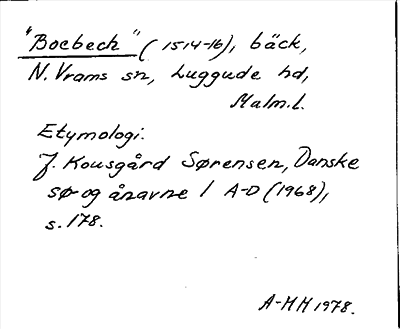 "Boebech" (1514-16), bäck,
N. Vrams sn, Luggude hd,
Malm.l.
Etymologi:
J. Kousgård Sørensen, Danske
sø- og ånavne 1 A-D (1968),
s. 178.
A-HH 1978.